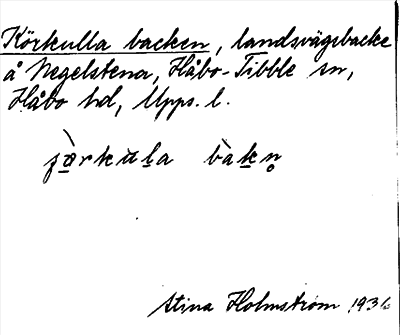 Körkulla backen, landsvägsbacke
å Negelstena, Håbo-Tibble sn,
Håbo hd, Upps. l.
Stina Holmström 1936